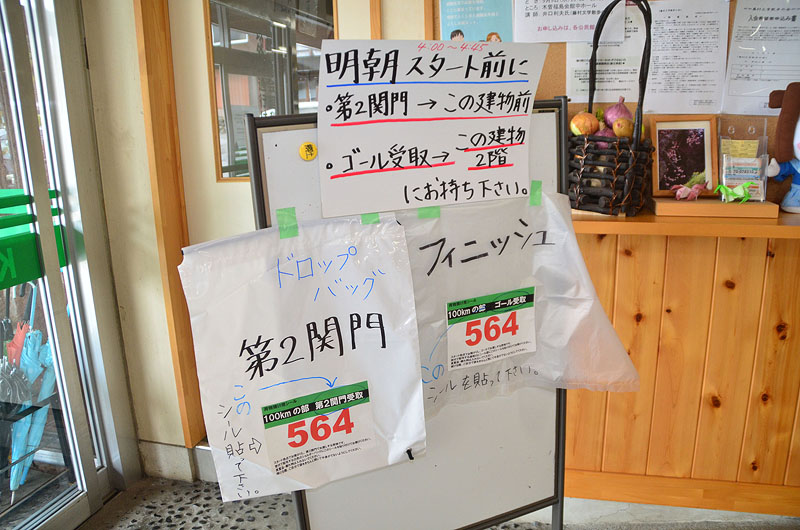 ところ 木曽福島会館中ホール
4:00〜4:45
明朝スタート前に
・第2関門→この建物前
・ゴール受取→この建物2階
にお持ち下さい。
ドロップ
バッグ
第2関門
この
シール
貼って下さい。
100kmの部 第2関門受取
564
フィニッシュ
100kmの部 ゴール受取
564
この
シールを貼って下さい。